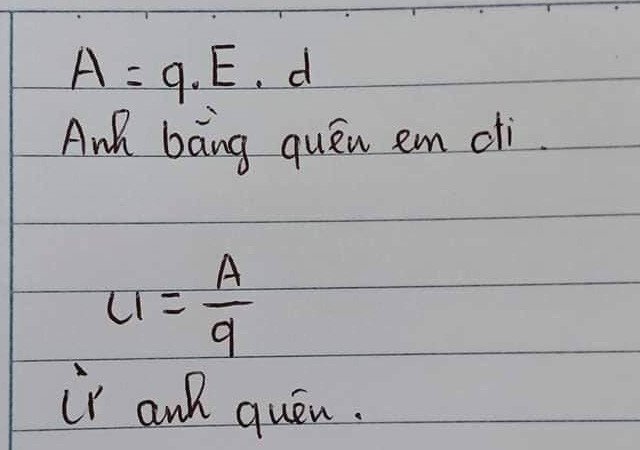 A = q.E.d
Anh bằng quên em đi.
U = A/q
Ừ anh quên.